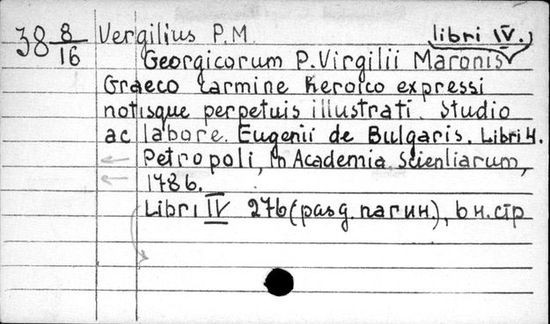 38 8/16 Vergilius P.M.
libri IV.
Georgicorum P. Virgilii Maronis
Graeco carmine heroico expressi
notisque perpetuis illustrati. Studio
ac labore. Eugenii de Bulgaris. Libri 4.
Petropoli, in Academia Scientiarum,
1786.
Libri IV 276 (разд. пагин.), 6 н. стр